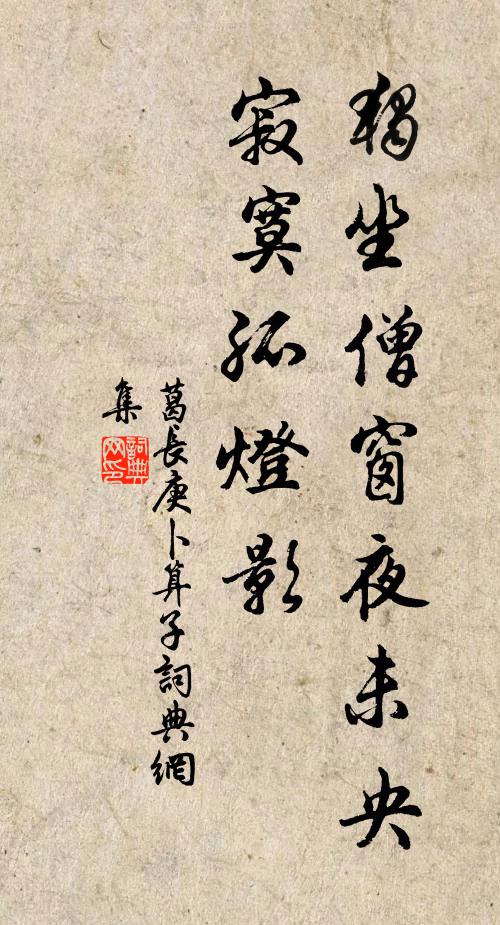 獨坐僧窗夜未央
寂寞孤燈影
葛長庚卜算子詞典網
集
詞典
网印